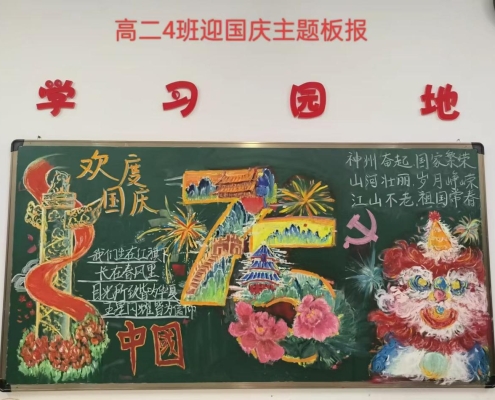 高二4班迎国庆主题板报
学习园地
欢度
国庆
75
神州奋起,国家繁荣
山河壮丽,岁月峥嵘
江山不老,祖国常春
我们生在红旗下
长在春风里
目光所致皆为华夏
五星闪耀皆为信仰
中國